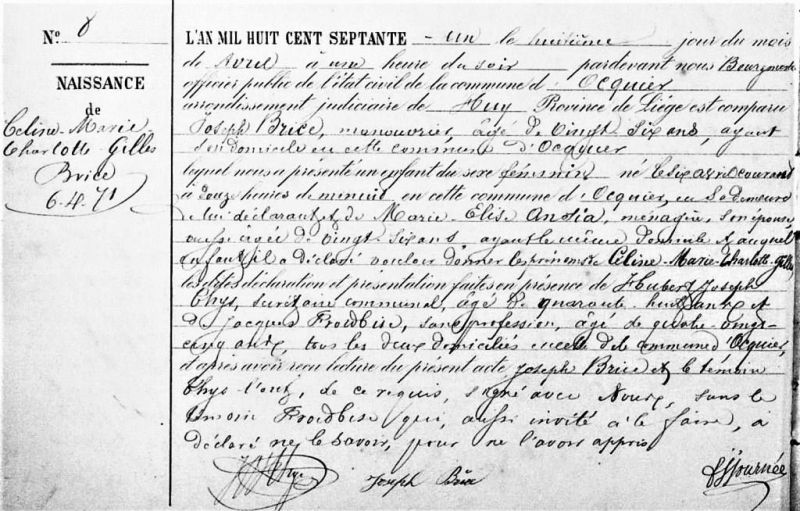 N° 8
NAISSANCE
de
Celine-Marie
Charlotte-Gilles
Brice
6.4.71
L'AN MIL HUIT CENT SEPTANTE - un le huitième jour du mois
de Avril à une heure du soir pardevant nous Bourgmestre
officier public de l'état civil de la commune d'Ocquier
arrondissement judiciaire de Huy Province de Liége est comparu
Joseph Brice, manouvrier, âgé de vingt six ans, ayant
son domicile en cette commune d'Ocquier
lequel nous a présenté un enfant du sexe féminin né le six avril courant
à douze heures de minuit en cette commune d'Ocquier, en sa demeure
de lui déclarant et de Marie-Elise Ansia, ménagère, son épouse
aussi âgée de vingt-six ans, ayant le même domicile et auquel
enfant il a déclaré vouloir donner les prénoms de Céline-Marie-Charlotte-Gilles
les dites déclaration et présentation faites en présence de Hubert Joseph
Thys, secrétaire communal, âgé de quarante huit ans et
de Jacques Froidbise, sans profession, âgé de quatre-vingt-
cinq ans, tous les deux domiciliés en cette dite commune d'Ocquier,
et après avoir reçu lecture du présent acte, Joseph Brice et le témoin
Thys l'ont, de ce requis, signé avec Nous, sans le
témoin Froidbise qui, aussi invité à le faire, a
déclaré ne le savoir, pour ne l'avoir appris
Thys Joseph Brice Journée